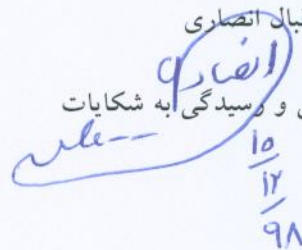 بال انصاری
انصاری
و رسیدگی به شکایات
۱۵
۱۲
۹۸